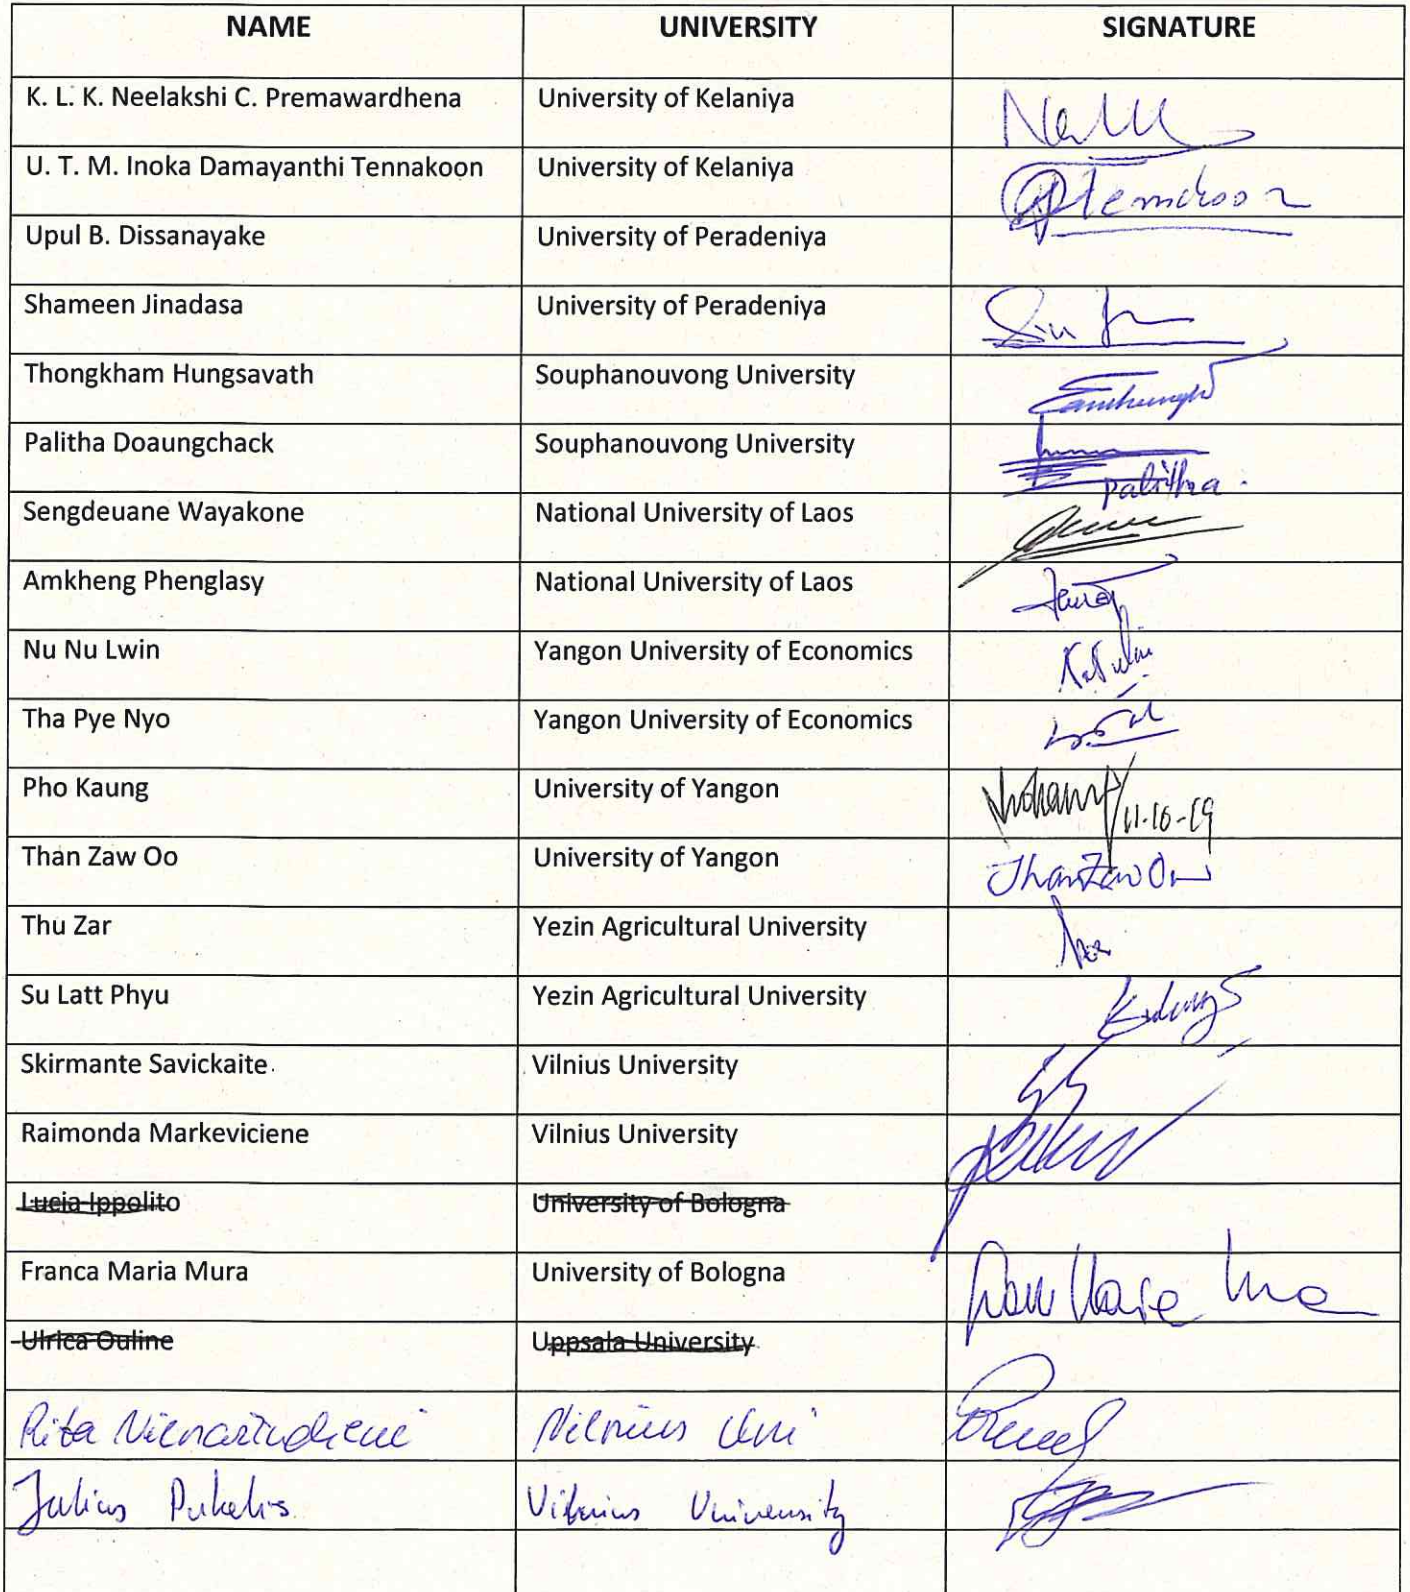 NAME UNIVERSITY SIGNATURE
K. L. K. Neelakshi C. Premawardhena University of Kelaniya
U. T. M. Inoka Damayanthi Tennakoon University of Kelaniya
Upul B. Dissanayake University of Peradeniya
Shameen Jinadasa University of Peradeniya
Thongkham Hungsavath Souphanouvong University
Palitha Doaungchack Souphanouvong University palitha.
Sengdeuane Wayakone National University of Laos
Amkheng Phenglasy National University of Laos
Nu Nu Lwin Yangon University of Economics
Tha Pye Nyo Yangon University of Economics
Pho Kaung University of Yangon 11-10-19
Than Zaw Oo University of Yangon Than Zaw Oo
Thu Zar Yezin Agricultural University
Su Latt Phyu Yezin Agricultural University
Skirmante Savickaite Vilnius University
Raimonda Markeviciene Vilnius University
Lucia Ippolito University of Bologna
Franca Maria Mura University of Bologna
Ulrica Ouline Uppsala University
Rita Vilnius Uni
Julius Pukelis Vilnius University